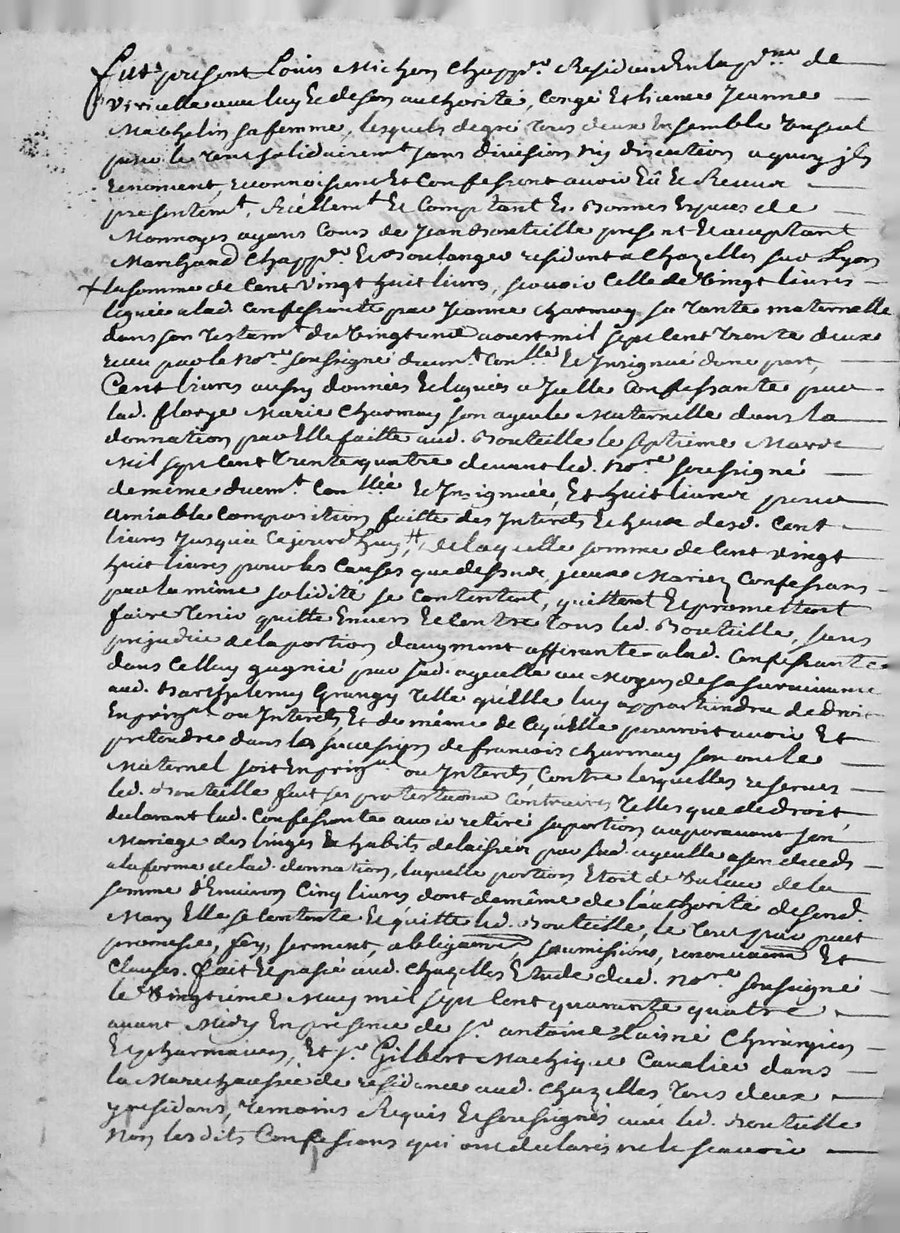 fut present Louis Michon chapp.er Residant En la p.sse de
Viricelle avec luy Et de son authorité, Congé Et licence Jeanne
Mathelin sa femme, lesquels de gré tous deux Ensemble un seul
pour le tout solidairem.t sans division ny discution a quoy jls
renoncent, reconnoissent Et Confessent avoir Eû Et Reçeu
presentem.t, Réellem.t Et Comptant Es Bonnes Espèces de
Monnoyes ayans Cours de Jean Bouteille present Et acceptant
Marchand Chapp.er Et Boulanger residant a Chazelles sur Lyon
+ la somme de Cent Vingt huit livres, sçavoir Celle de Vingt livres
leguée a lad. Confessante par Jeanne Charmay sa tante maternelle
dans son Testam.t du Vingt une aoust mil sept cent trente deux
receu par le No.re soussigné duem.t Con.llé Et Insignué d'une part,
Cent livres aussy données Et leguées a Jcelle Confessante par
lad. florye Marie Charmay son ayeule Maternelle dans la
donnation par Elle faitte aud. Bouteille le septième Mars
Mil sept cent trente quatre devant led. No.re soussigné
de même duem.t Con.llée Et Insignuée, Et huit livres pour
amiable Composition faitte des Interets Echeux desd. Cent
livres Jusqua Cejourd'huy, de laquelle somme de Cent vingt
huit livres pour les Causes que dessus, jceux Mariez Confessans
par la même solidité se Contentent, quittent Et promettent
faire tenir quitte Envers Et Contre tous led. Bouteille, sans
prejudice de la portion d'augment afferante a lad. Confessante
dans Celluy gagnié par sad. ayeulle au Moyen de sa survivance
aud. Barthelemy Grangy telle qu'Elle luy appartiendra de droit
En prin.al ou Interets, Et de même de Ce qu'elle pourroit avoir Et
pretendre dans la succession de francois Charmay son oncle
Maternel soit En prin.al ou Interets, Contre lesquelles reserves
led. Bouteille fait ses protestations Contraires telles que de droit
declarant lad. Confessante avoir retiré sa portion auparavant son
Mariage des linges Et habits delaissés par sad. ayeulle a son deceds
a la forme de lad. donnation, laquelle portion Etoit de Valeur de la
somme d'Environ Cinq livres dont de même de l'authorité de sond.
Mary Elle se Contente Et quitte led. Bouteille, le tout par pact
promesse, foy, serment, obligations, soumissions, renonciations Et
Clauses. fait Et passé aud. Chazelles Etude dud. No.re soussigné
le Vingtième May mil sept cent quarante quatre
avant Midy En présence de s.r antoine Laisné Chirurgien
Et pharmacien, Et s.r Gilbert Machique Cavalier dans
la Marechaussée de résidance aud. Chazelles tous deux
y residans, temoins Requis Et soussignés avec led. Bouteille
Non lesdits Confessans qui ont declarés ne le sçavoir